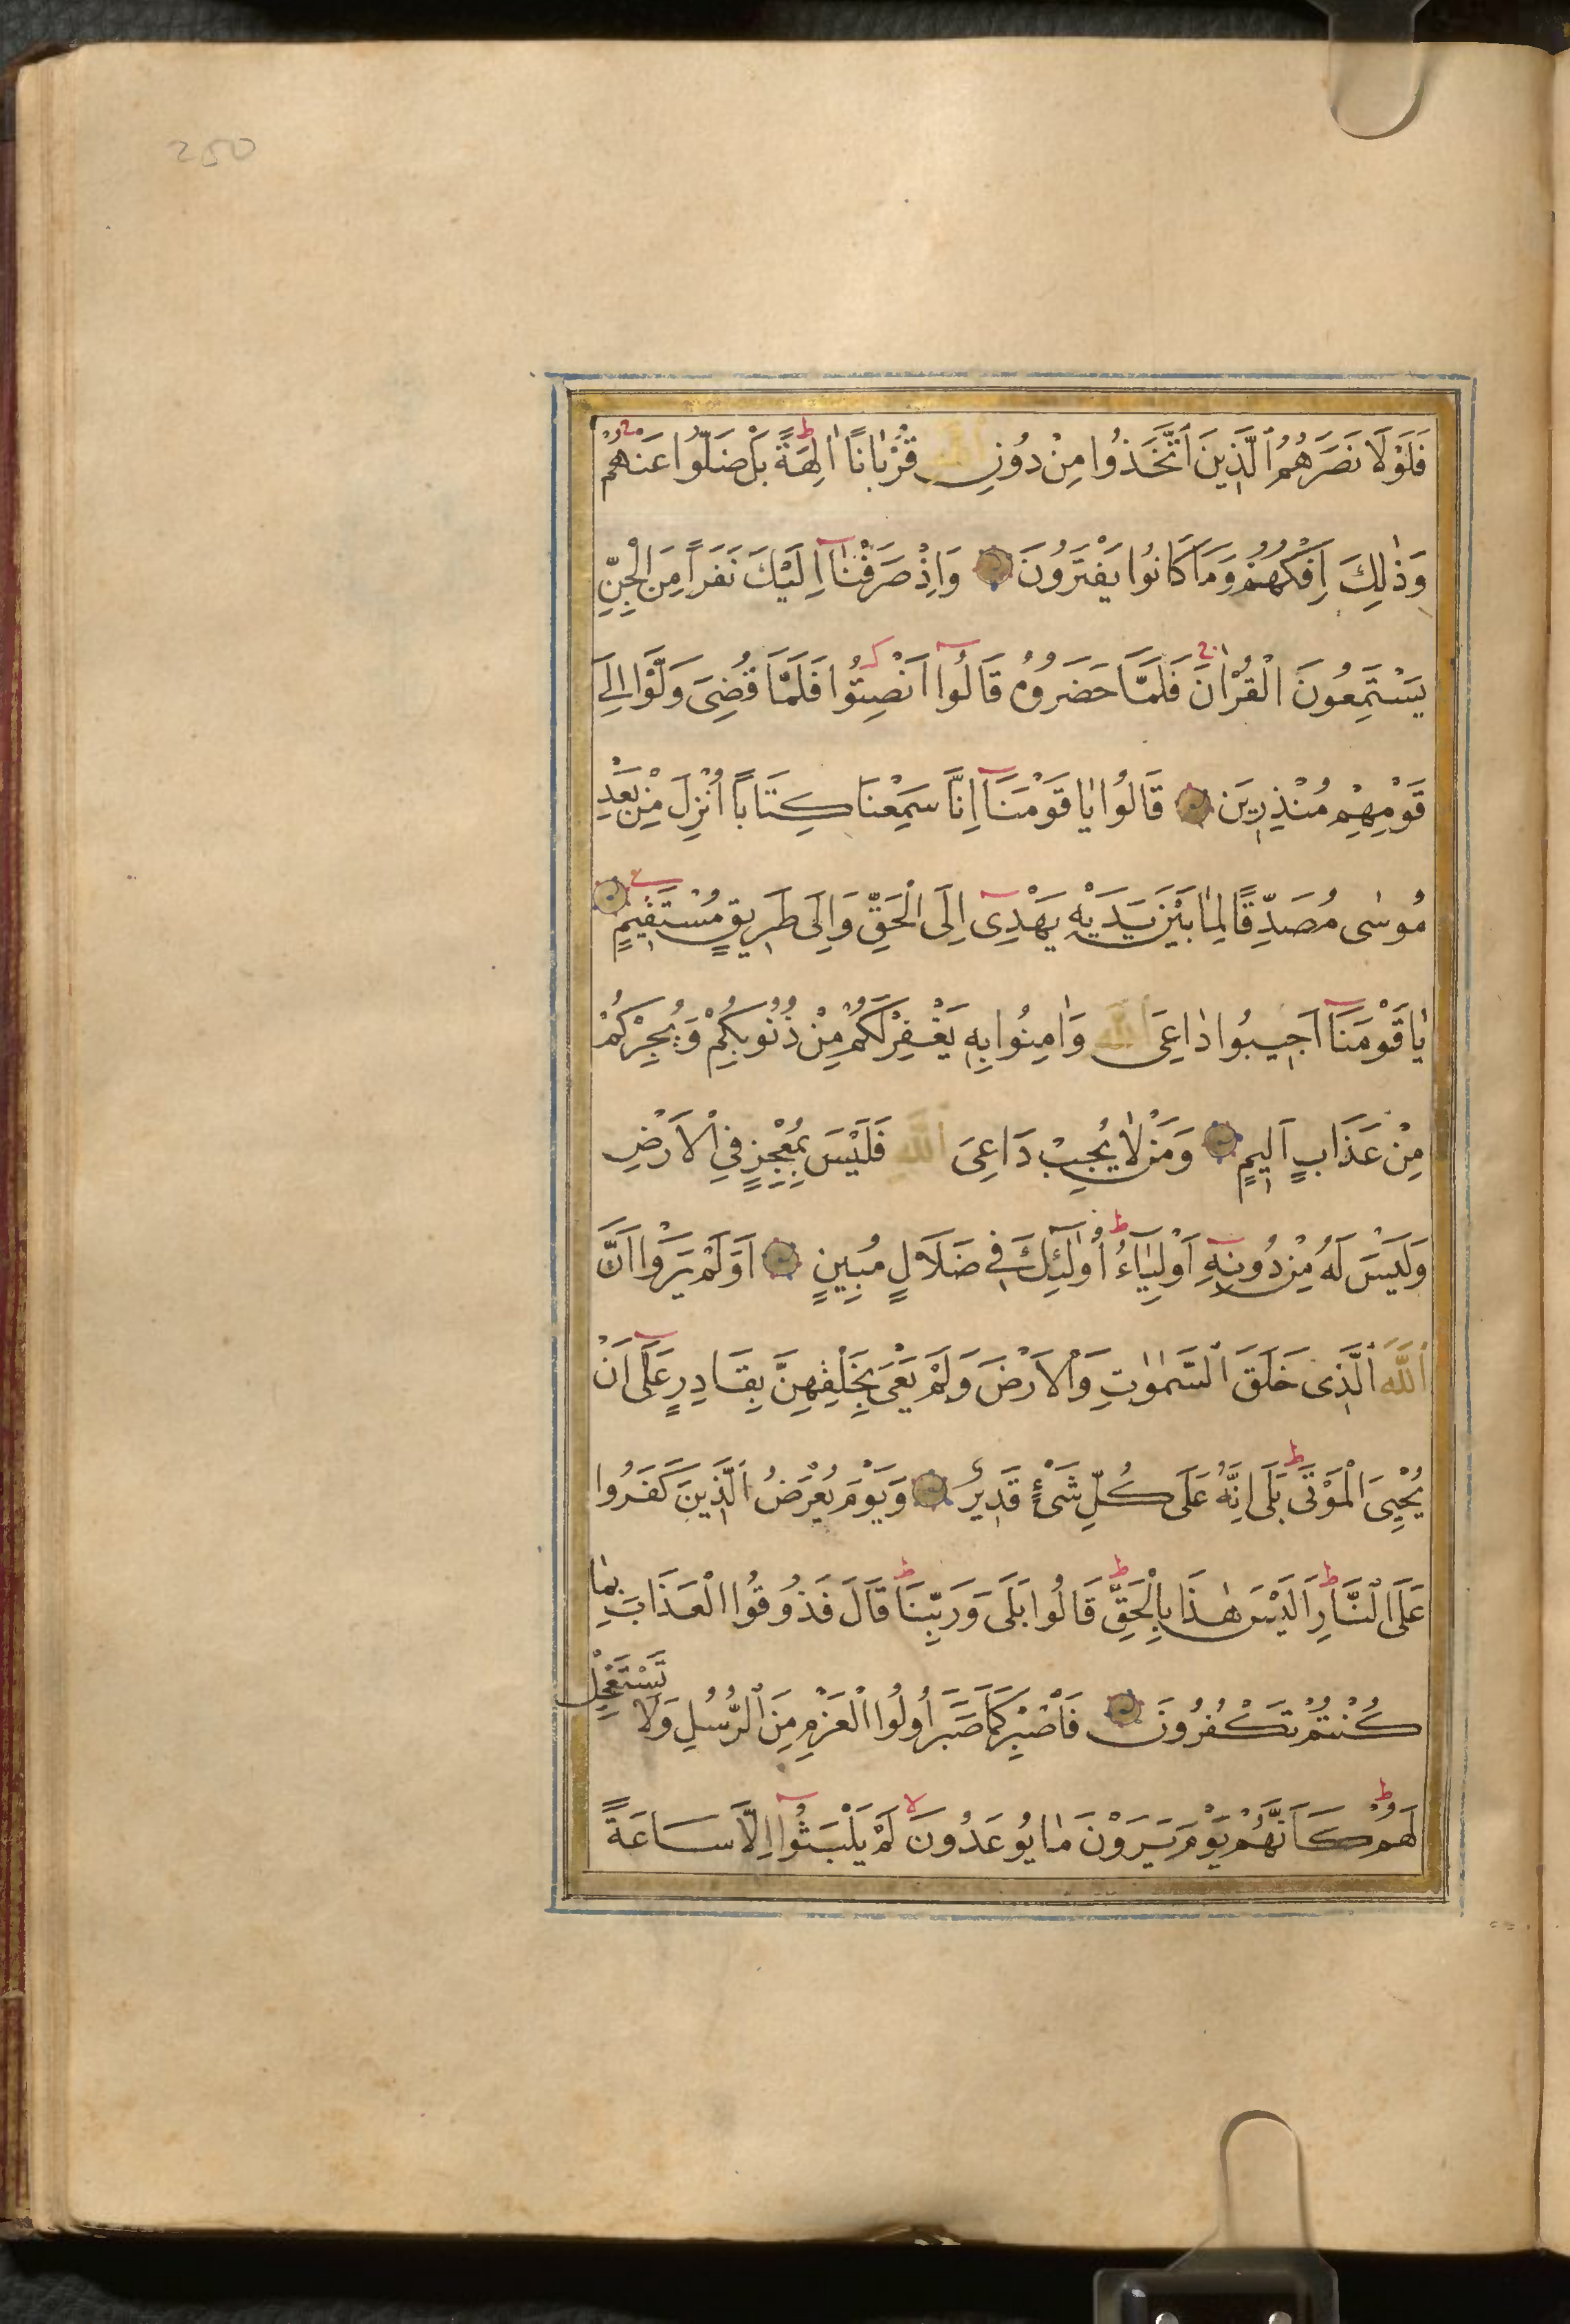 250
فَلَوْلَا نَصَرَهُمُ الَّذِينَ اتَّخَذُوا مِنْ دُونِ اللّٰهِ قُرْبَانًا اٰلِهَةً بَلْ ضَلُّوا عَنْهُمْ
وَذٰلِكَ اِفْكُهُمْ وَمَا كَانُوا يَفْتَرُونَ وَاِذْ صَرَفْنَا اِلَيْكَ نَفَرًا مِنَ الْجِنِّ
يَسْتَمِعُونَ الْقُرْاٰنَ فَلَمَّا حَضَرُوهُ قَالُوا اَنْصِتُوا فَلَمَّا قُضِيَ وَلَّوْا اِلٰى
قَوْمِهِمْ مُنْذِرِينَ قَالُوا يَا قَوْمَنَا اِنَّا سَمِعْنَا كِتَابًا اُنْزِلَ مِنْ بَعْدِ
مُوسٰى مُصَدِّقًا لِمَا بَيْنَ يَدَيْهِ يَهْدِى اِلَى الْحَقِّ وَاِلٰى طَرِيقٍ مُسْتَقِيمٍ
يَا قَوْمَنَا اَجِيبُوا دَاعِيَ اللّٰهِ وَاٰمِنُوا بِهِ يَغْفِرْ لَكُمْ مِنْ ذُنُوبِكُمْ وَيُجِرْكُمْ
مِنْ عَذَابٍ اَلِيمٍ وَمَنْ لَا يُجِبْ دَاعِيَ اللّٰهِ فَلَيْسَ بِمُعْجِزٍ فِي الْاَرْضِ
وَلَيْسَ لَهُ مِنْ دُونِهِ اَوْلِيَاءُ اُولٰئِكَ فِي ضَلَالٍ مُبِينٍ اَوَلَمْ يَرَوْا اَنَّ
اللّٰهَ الَّذِى خَلَقَ السَّمٰوٰتِ وَالْاَرْضَ وَلَمْ يَعْيَ بِخَلْقِهِنَّ بِقَادِرٍ عَلٰى اَنْ
يُحْيِيَ الْمَوْتٰى بَلٰى اِنَّهُ عَلٰى كُلِّ شَىْءٍ قَدِيرٌ وَيَوْمَ يُعْرَضُ الَّذِينَ كَفَرُوا
عَلَى النَّارِ اَلَيْسَ هٰذَا بِالْحَقِّ قَالُوا بَلٰى وَرَبِّنَا قَالَ فَذُوقُوا الْعَذَابَ بِمَا
كُنْتُمْ تَكْفُرُونَ فَاصْبِرْ كَمَا صَبَرَ اُولُوا الْعَزْمِ مِنَ الرُّسُلِ وَلَا تَسْتَعْجِلْ
لَهُمْ كَاَنَّهُمْ يَوْمَ يَرَوْنَ مَا يُوعَدُونَ لَمْ يَلْبَثُوا اِلَّا سَاعَةً